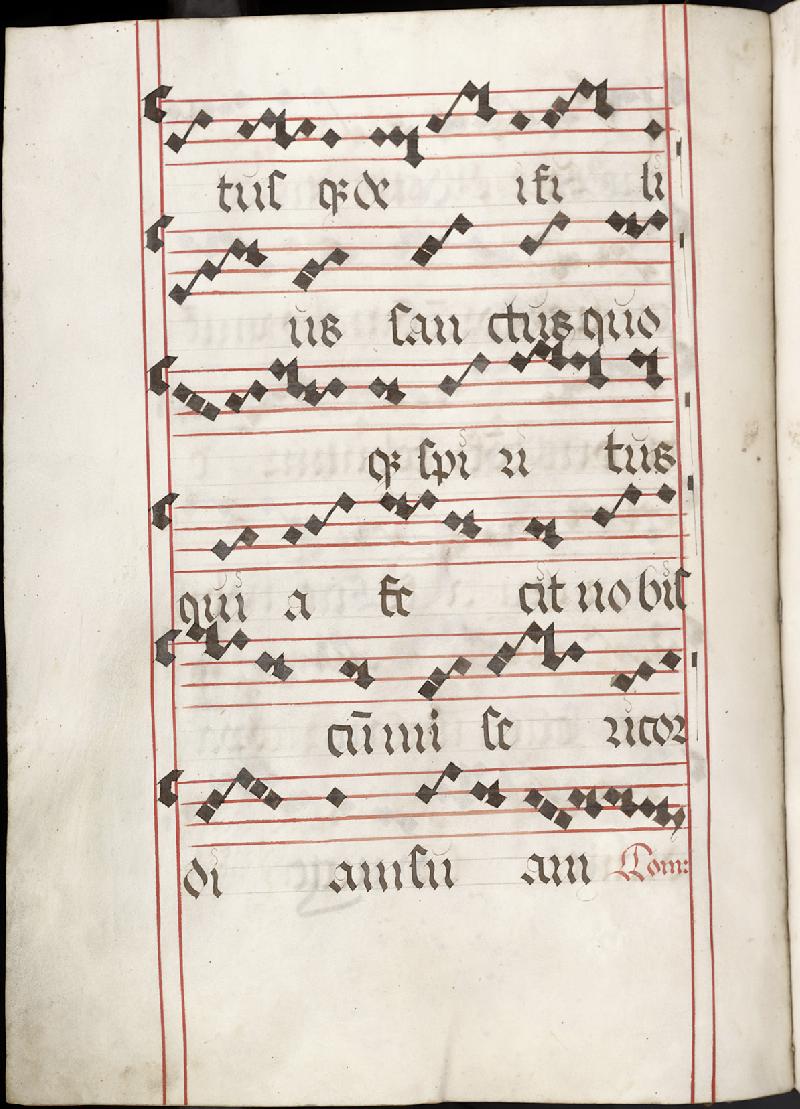 tus q; de i fi li
us san ctus quo
q; spi ri tus
qui a fe cit no bis
cū mi se ricor
di am su am Com: